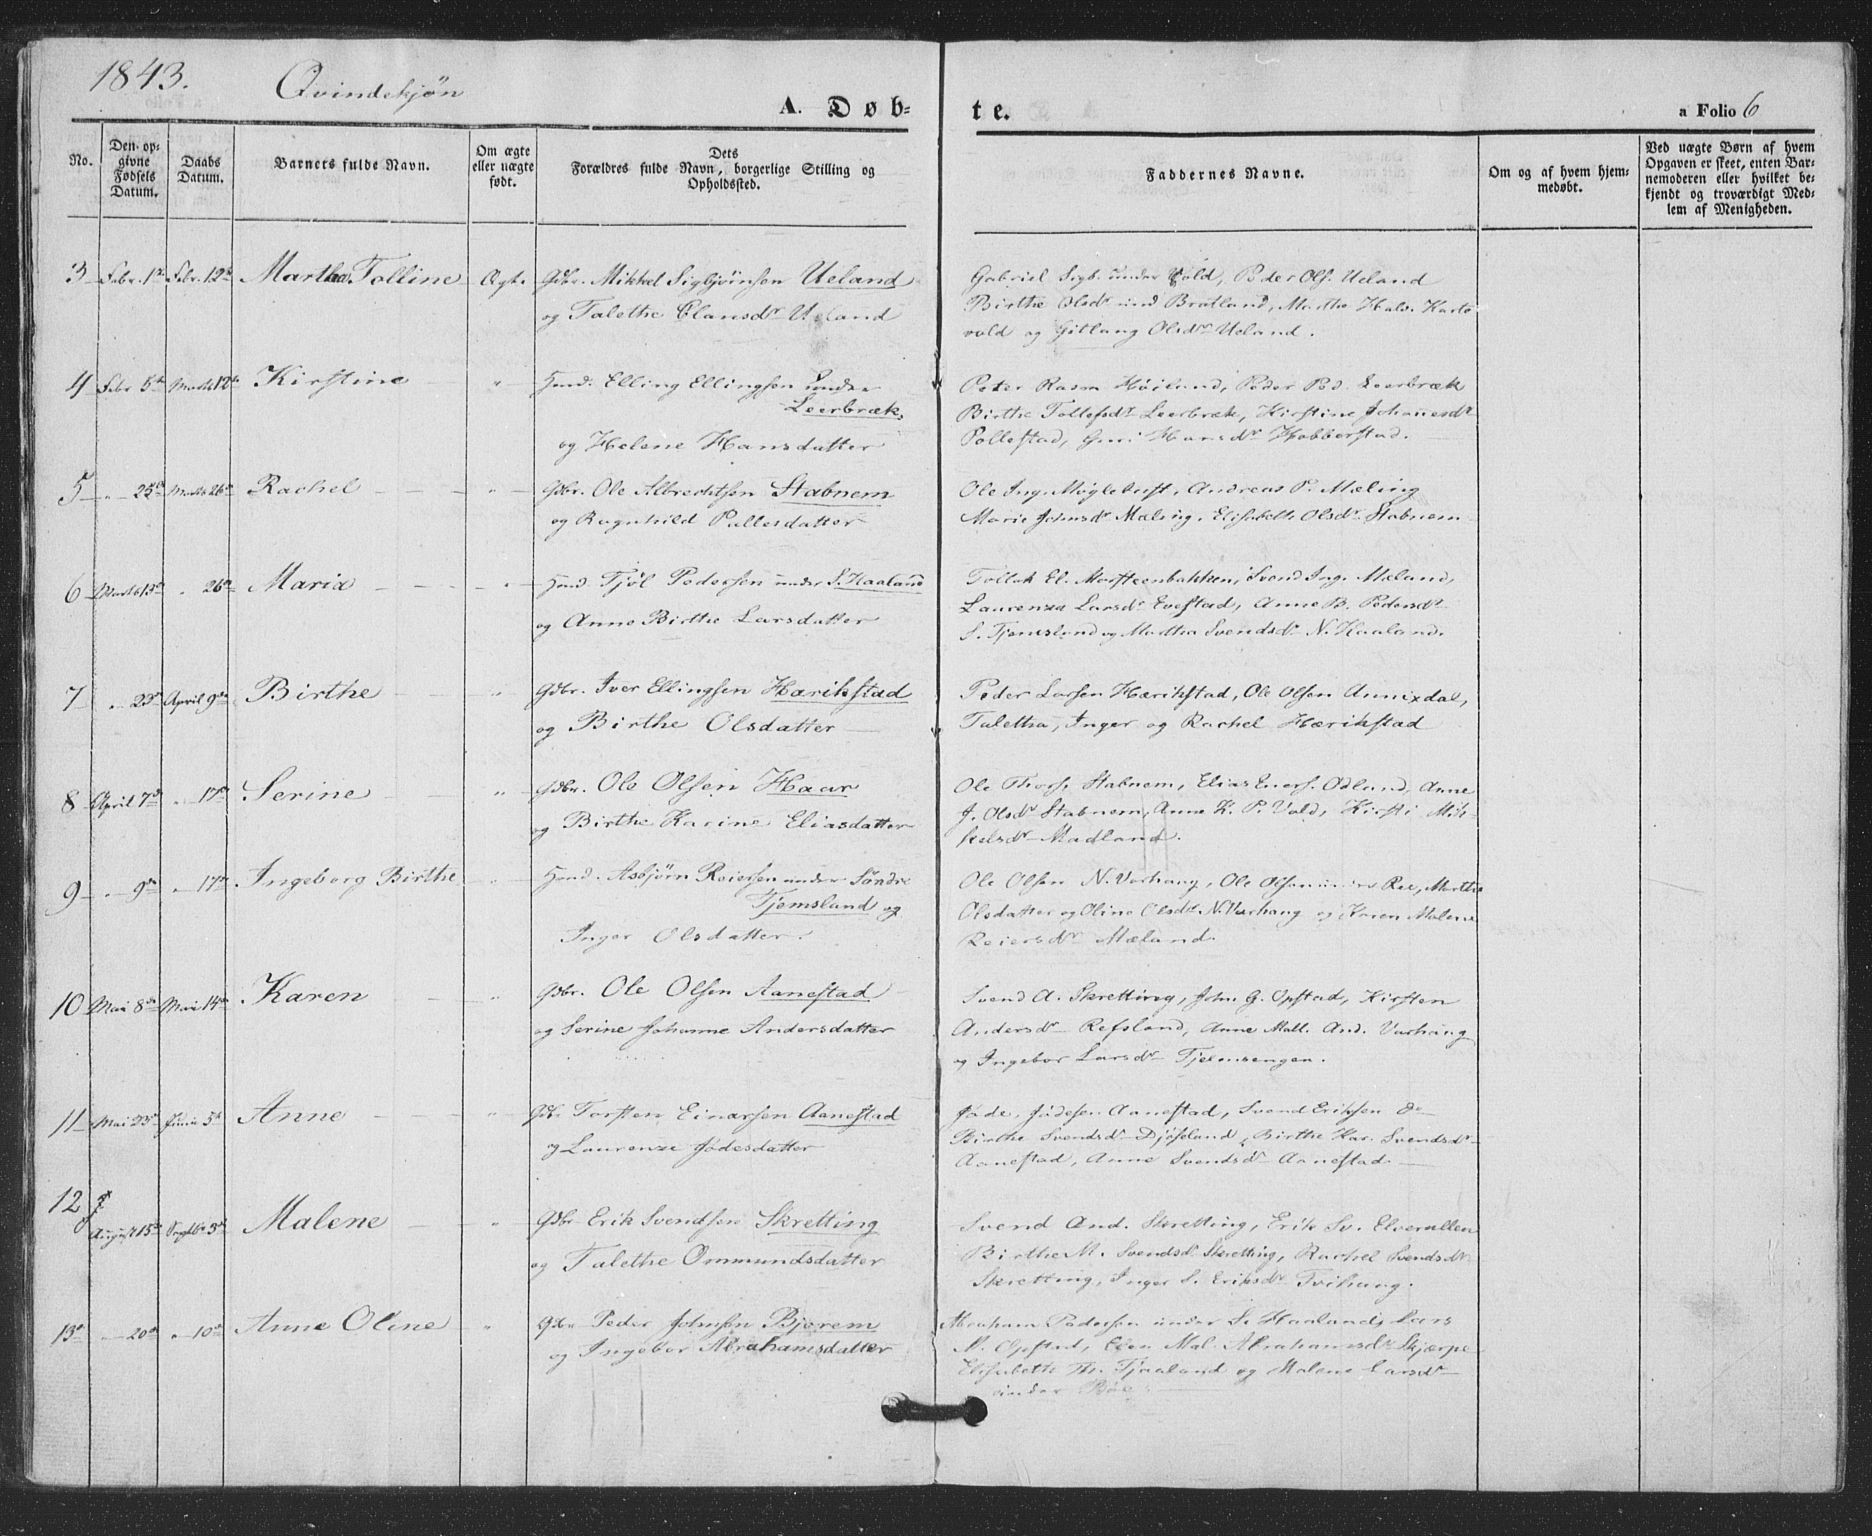 1843. Qvindekjøn
A. Døb-
te.
a Folio 6
No.
Den opgivne Fødsels Datum.
Daabs Datum.
Barnets fulde Navn.
Om ægte eller uægte født.
Dets Forældres fulde Navn, borgerlige Stilling og Opholdssted.
Faddernes Navne.
Om og af hvem hjemmedøbt.
Ved uægte Børn af hvem Opgaven er skeet, enten Barnemoderen eller hvilket bekjendt og troværdigt Medlem af Menigheden.
3 Febr. 1ste Febr. 12te Martha Tolline Ægt. Gdbr. Mikkel Sigbjørnsen Ueland
og Talethe Clausdr Ueland
Gabriel Sigb. under Vold, Peder Ols. Ueland
Birthe Olsdr und Bratland, Martha Halv.
vold og Gitlaug Olsdr Ueland.
4 Febr 5te Marts 12te Kirstine " Huusmd. Elling Ellingsen under
Leerbræk,
og Helene Hansdatter
Peter Rasm Høiland, Peder Ped. Leerbræk
Birthe Tollefsdr Leerbræk, Kirstine Johanesdr
Pollestad, Guri Hansdr Hobberstad.
5 " 25de Marts 26de Rachel " Gdbr. Ole Albrechtsen Stabnem
og Ragnhild Pallesdatter
Ole Ing. Møgletuft, Andreas P. Mæling
Marie Johnsdr Mæling, Elisabeth Olsdr Stabnem
6 Marts 13de " 26de Maria " Huusmd. Tjøl Pedersen under S. Haaland
og Anne Birthe Larsdatter
Tollak El. Morsteenbakken, Svend Ing. Mæland,
Laurenza Larsdr Evestad, Anne B. Pedersdr
S. Tjemsland og Martha Svendsdr N. Haaland.
7 " 23de April 9de Birthe " Gdbr. Iver Ellingsen Hærikstad
og Birthe Olsdatter
Peder Larsen Hærikstad, Ole Olsen Annixdal,
Taletha, Inger og Rachel Hærikstad
8 April 7de " 17de Serine " Gdbr. Ole Olsen Haar
og Birthe Karine Eliasdatter
Ole Thors. Stabnem, Elias Eners. Odland, Anne
J. Olsdr Stabnem, Anne K. P. Vold, Kirsti Mik-
kelsdr Madland.
9 " 9de " 17de Ingeborg Birthe " Huusmd. Asbjørn Reiersen under Søndre
Tjemsland og
Inger Olsdatter.
Ole Olsen N. Varhaug, Ole Olsen under Ree, Marthe
Olsdatter og Oline Olsdr N. Varhaug og Karen Malene
Reiersdr Mæland.
10 Mai 8de Mai 14de Karen " Gdbr. Ole Olsen Aanestad
og Serine Johanne Andersdatter
Svend A. Skretting, John G. Opstad, Kirsten
Andersdr Refsland, Anne Mall. And. Varhaug
og Ingebor Larsdr Tjemsengen.
11 Mai 23de Junii 5te Anne " Gdbr. Torsten Einarsen Aanestad
og Laurenze Jødesdatter
Jøde Jødesen Aanestad, Svend Eriksen do
Birthe Svendsdr Djøseland, Birthe Kar. Svendsdr
Aanestad, Anne Svendsdr Aanestad.
12 August 15de Septbr 3de Malene " Gdbr Erik Svendsen Skretting
og Talethe Ommundsdatter
Svend And. Skretting, Erik Sv.
Birthe M. Svendsdr Skretting, Rachel Svendsdr
Skretting, Inger S. Eriksdr Tvihaug.
13 " 20de " 10de Anne Oline " Gdbr Peder Johnsen Bjorem
og Ingebor Abrahamsdatter
Abraham Pedersen under S. Haaland, Lars
Opstad, Elen Mal. Abrahamsdr Skjærpe
Elisabeth Th. Tjaaland og Malene Larsdr
under Bøe